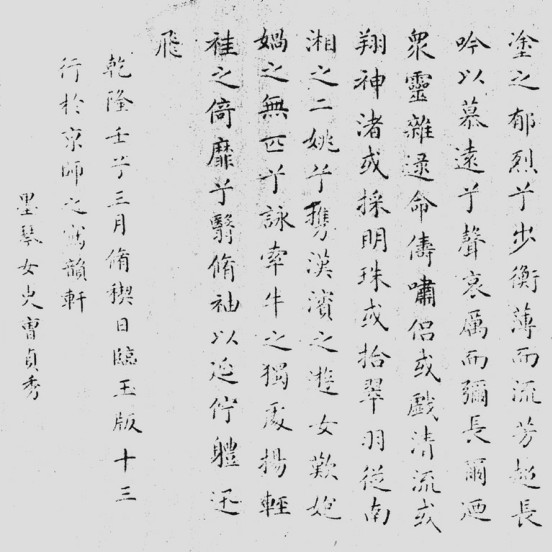 塗之郁烈兮步衡薄而流芳超長
吟以慕遠兮聲哀厲而彌長爾迺
衆靈雜遝命儔嘯侶或戲清流或
翔神渚或採明珠或拾翠羽從南
湘之二姚兮攜漢濱之遊女歎㚿
媧之無匹兮詠牽牛之獨處揚輕
袿之倚靡兮翳脩袖以延佇軆迅
飛
乾隆壬子三月脩禊日臨玉版十三
行於京師之寫韻軒
墨琴女史曹貞秀